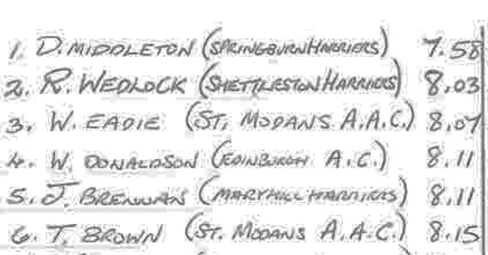 1. D. MIDDLETON (SPRINGBURN HARRIERS) 7.58
2. R. WEDLOCK (SHETTLESTON HARRIERS) 8.03
3. W. EADIE (ST. MODANS A.A.C.) 8.07
4. W. DONALDSON (EDINBURGH A.C.) 8.11
5. J. BRENNAN (MARYHILL HARRIERS) 8.11
6. T. BROWN (ST. MODANS A.A.C.) 8.15